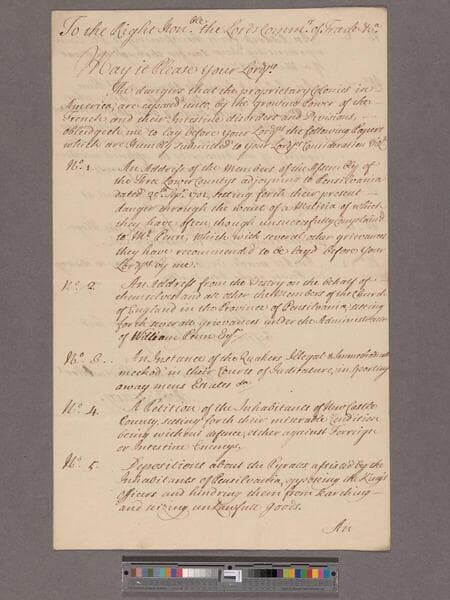 To the Right Hon.ble the Lords Comm.rs of Trade &c.
May it Please your Lordps.
The dangers that the proprietary Colonies in
America, are exposed unto, by the Growing Power of the
French and their Intestine disorders and Divisions,
obligeth me to lay before your Lordps the following Papers
which are Humbly submitted to your Lordps Consideration Vizt.
No. 1. An Address of the Members of the Assembly of
the Three Lower Countys adjoyning to Pensilvania
dated 1701, setting forth their present
danger through the want of a Militia of which
they have often, though unsuccessfully complained
to Mr. Penn, which with several other grievances
they have recommended to be layd before your
Lordps by me.
No. 2. An Address from the Vestry on the behalf of
themselves and all other the Members of the Church
of England in the Province of Pensilvania, setting
forth severall grievances under the Administration
of William Penn Esqr.
No. 3. An Instance of the Quakers Illegal &
method in their Courts of Judicature, in
away mens Estates &c.
No. 4. A Petition of the Inhabitants of New Castle
County, setting forth their miserable Condition
being without defence, either against Forreign
or Intestine Enemys.
No. 5. Depositions about the Pyrates assisted by the
Inhabitants of Pensilvania, opposeing the Kings
Officers and hindring them from searching
and seizing unlawfull goods.
An